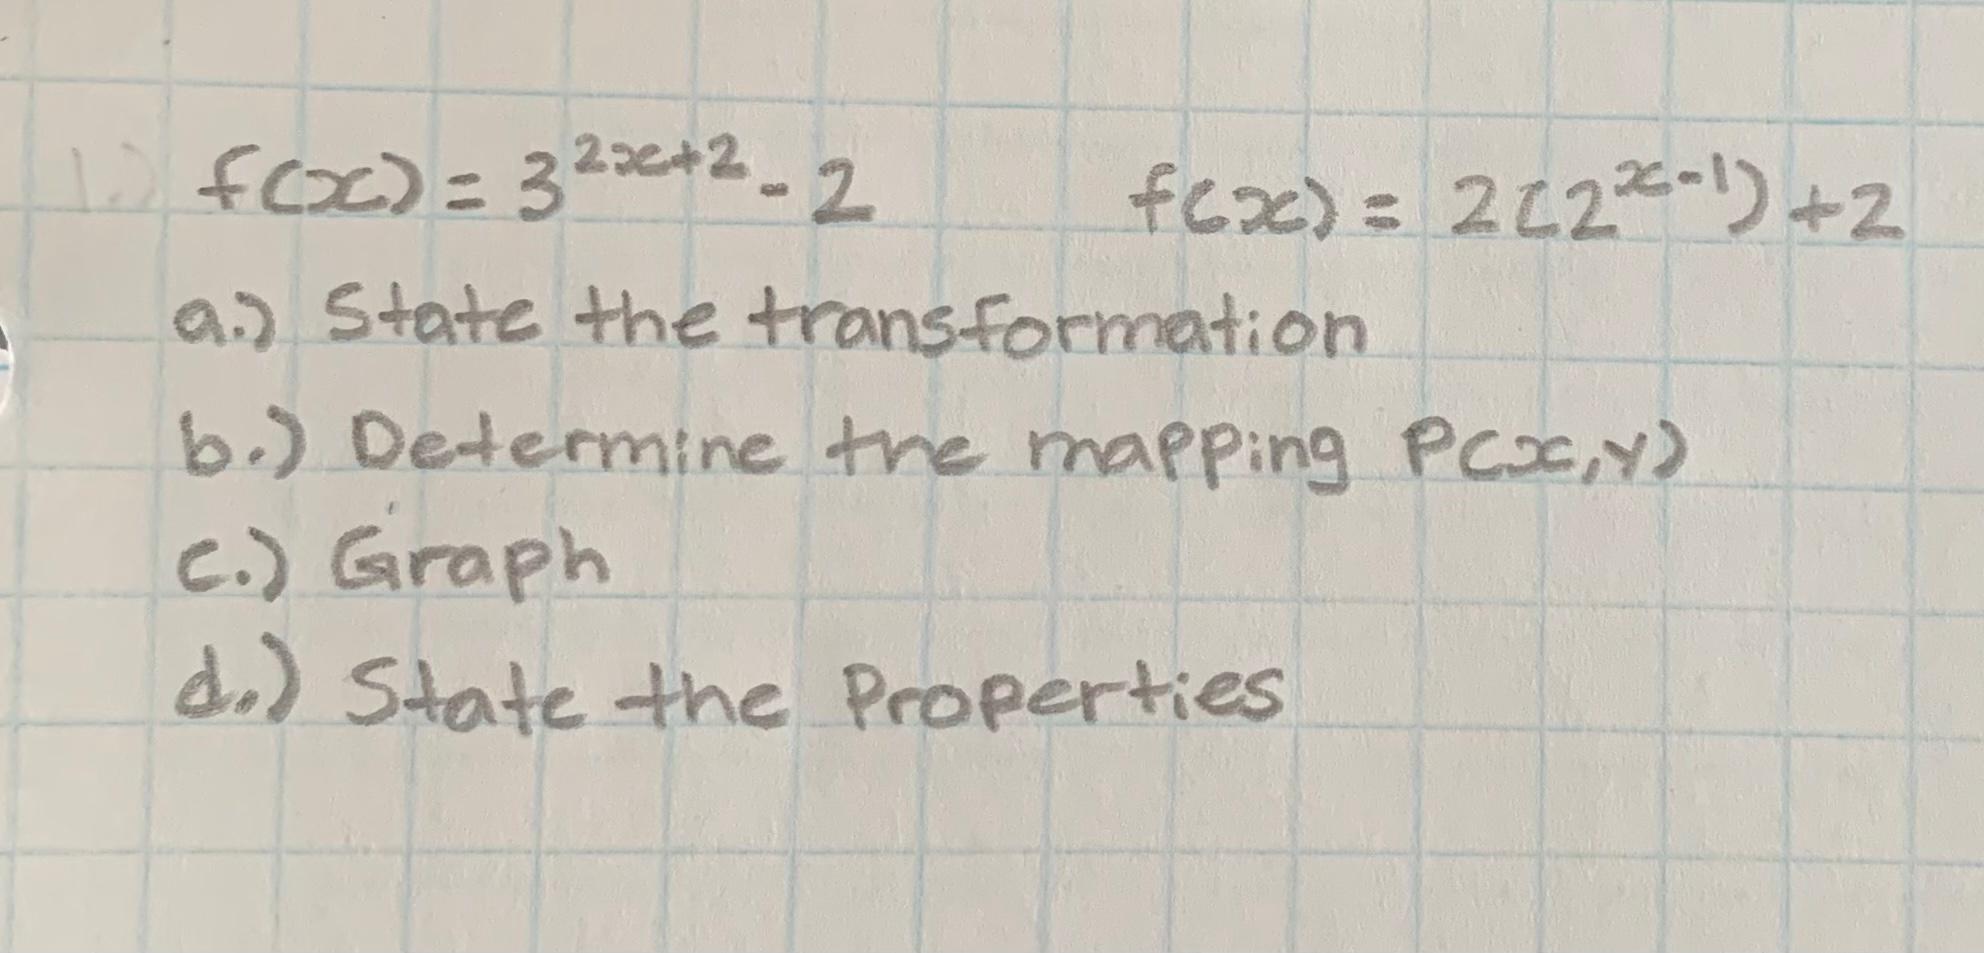 1.) f(x) = 3^{2x+2} - 2 f(x) = 2(2^{x-1}) + 2
a.) State the transformation
b.) Determine the mapping P(x,y)
c.) Graph
d.) State the Properties